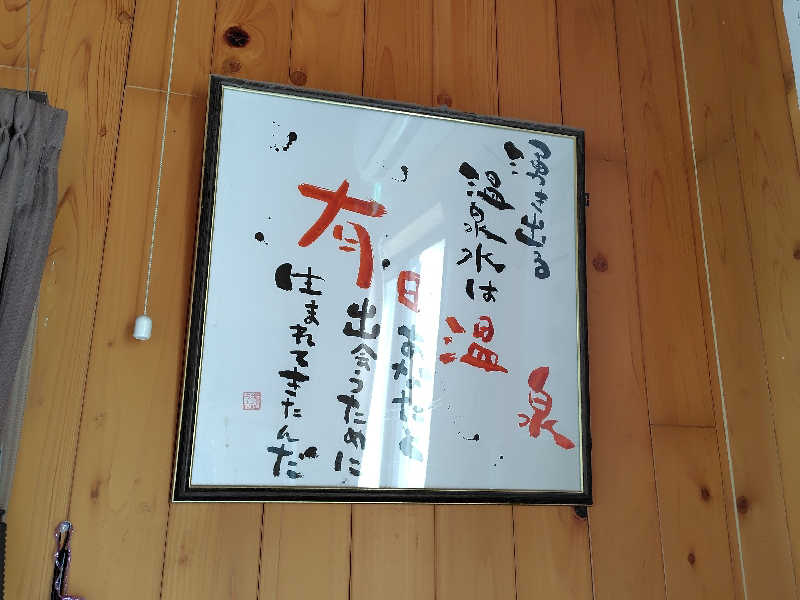 湧き出る
温泉水は
泉
温
日
あなたと
有
出会うために
生まれてきたんだ